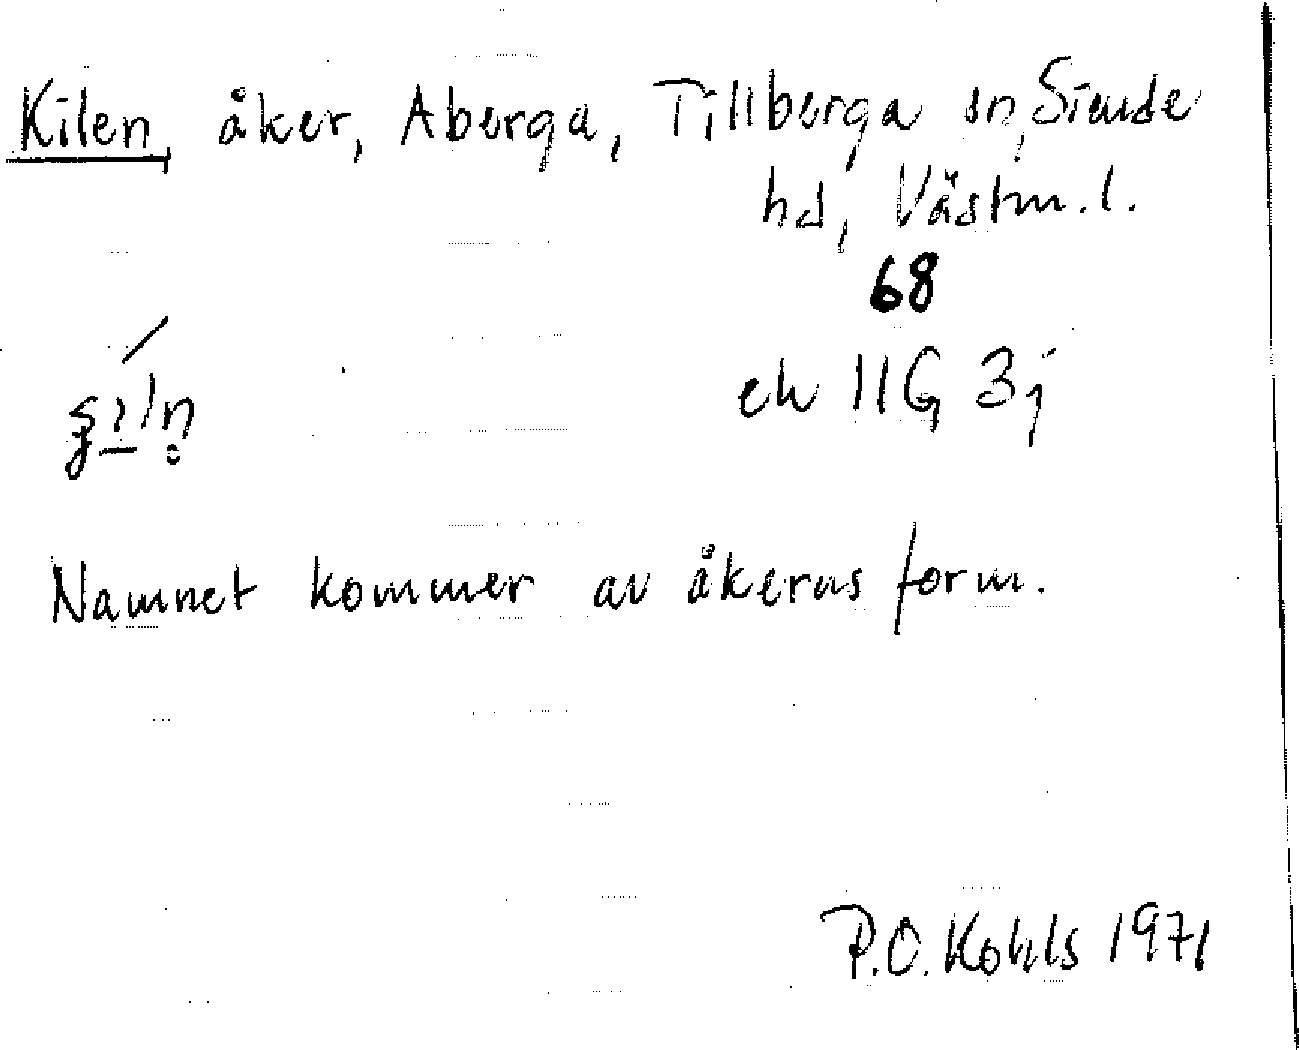 Kilen, åker, Aberga, Tillberga sn, Siende
hd, Västm. l.
68
ek 11G 3j
Namnet kommer av åkerns form.
P.O. Kohls 1971